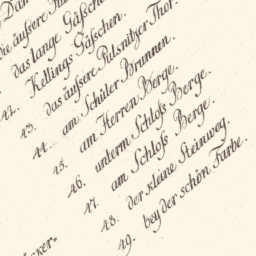 die äußere
das lange Gäßchen
42. Kellings Gäßchen.
43. das äußere Pulsnitzer Thor.
44. am Schüler Brunnen.
45. am Herren Berge.
46. unterm Schloß Berge.
47. am Schloß Berge.
48. der kleine Steinweg.
49. bey der schön Farbe.